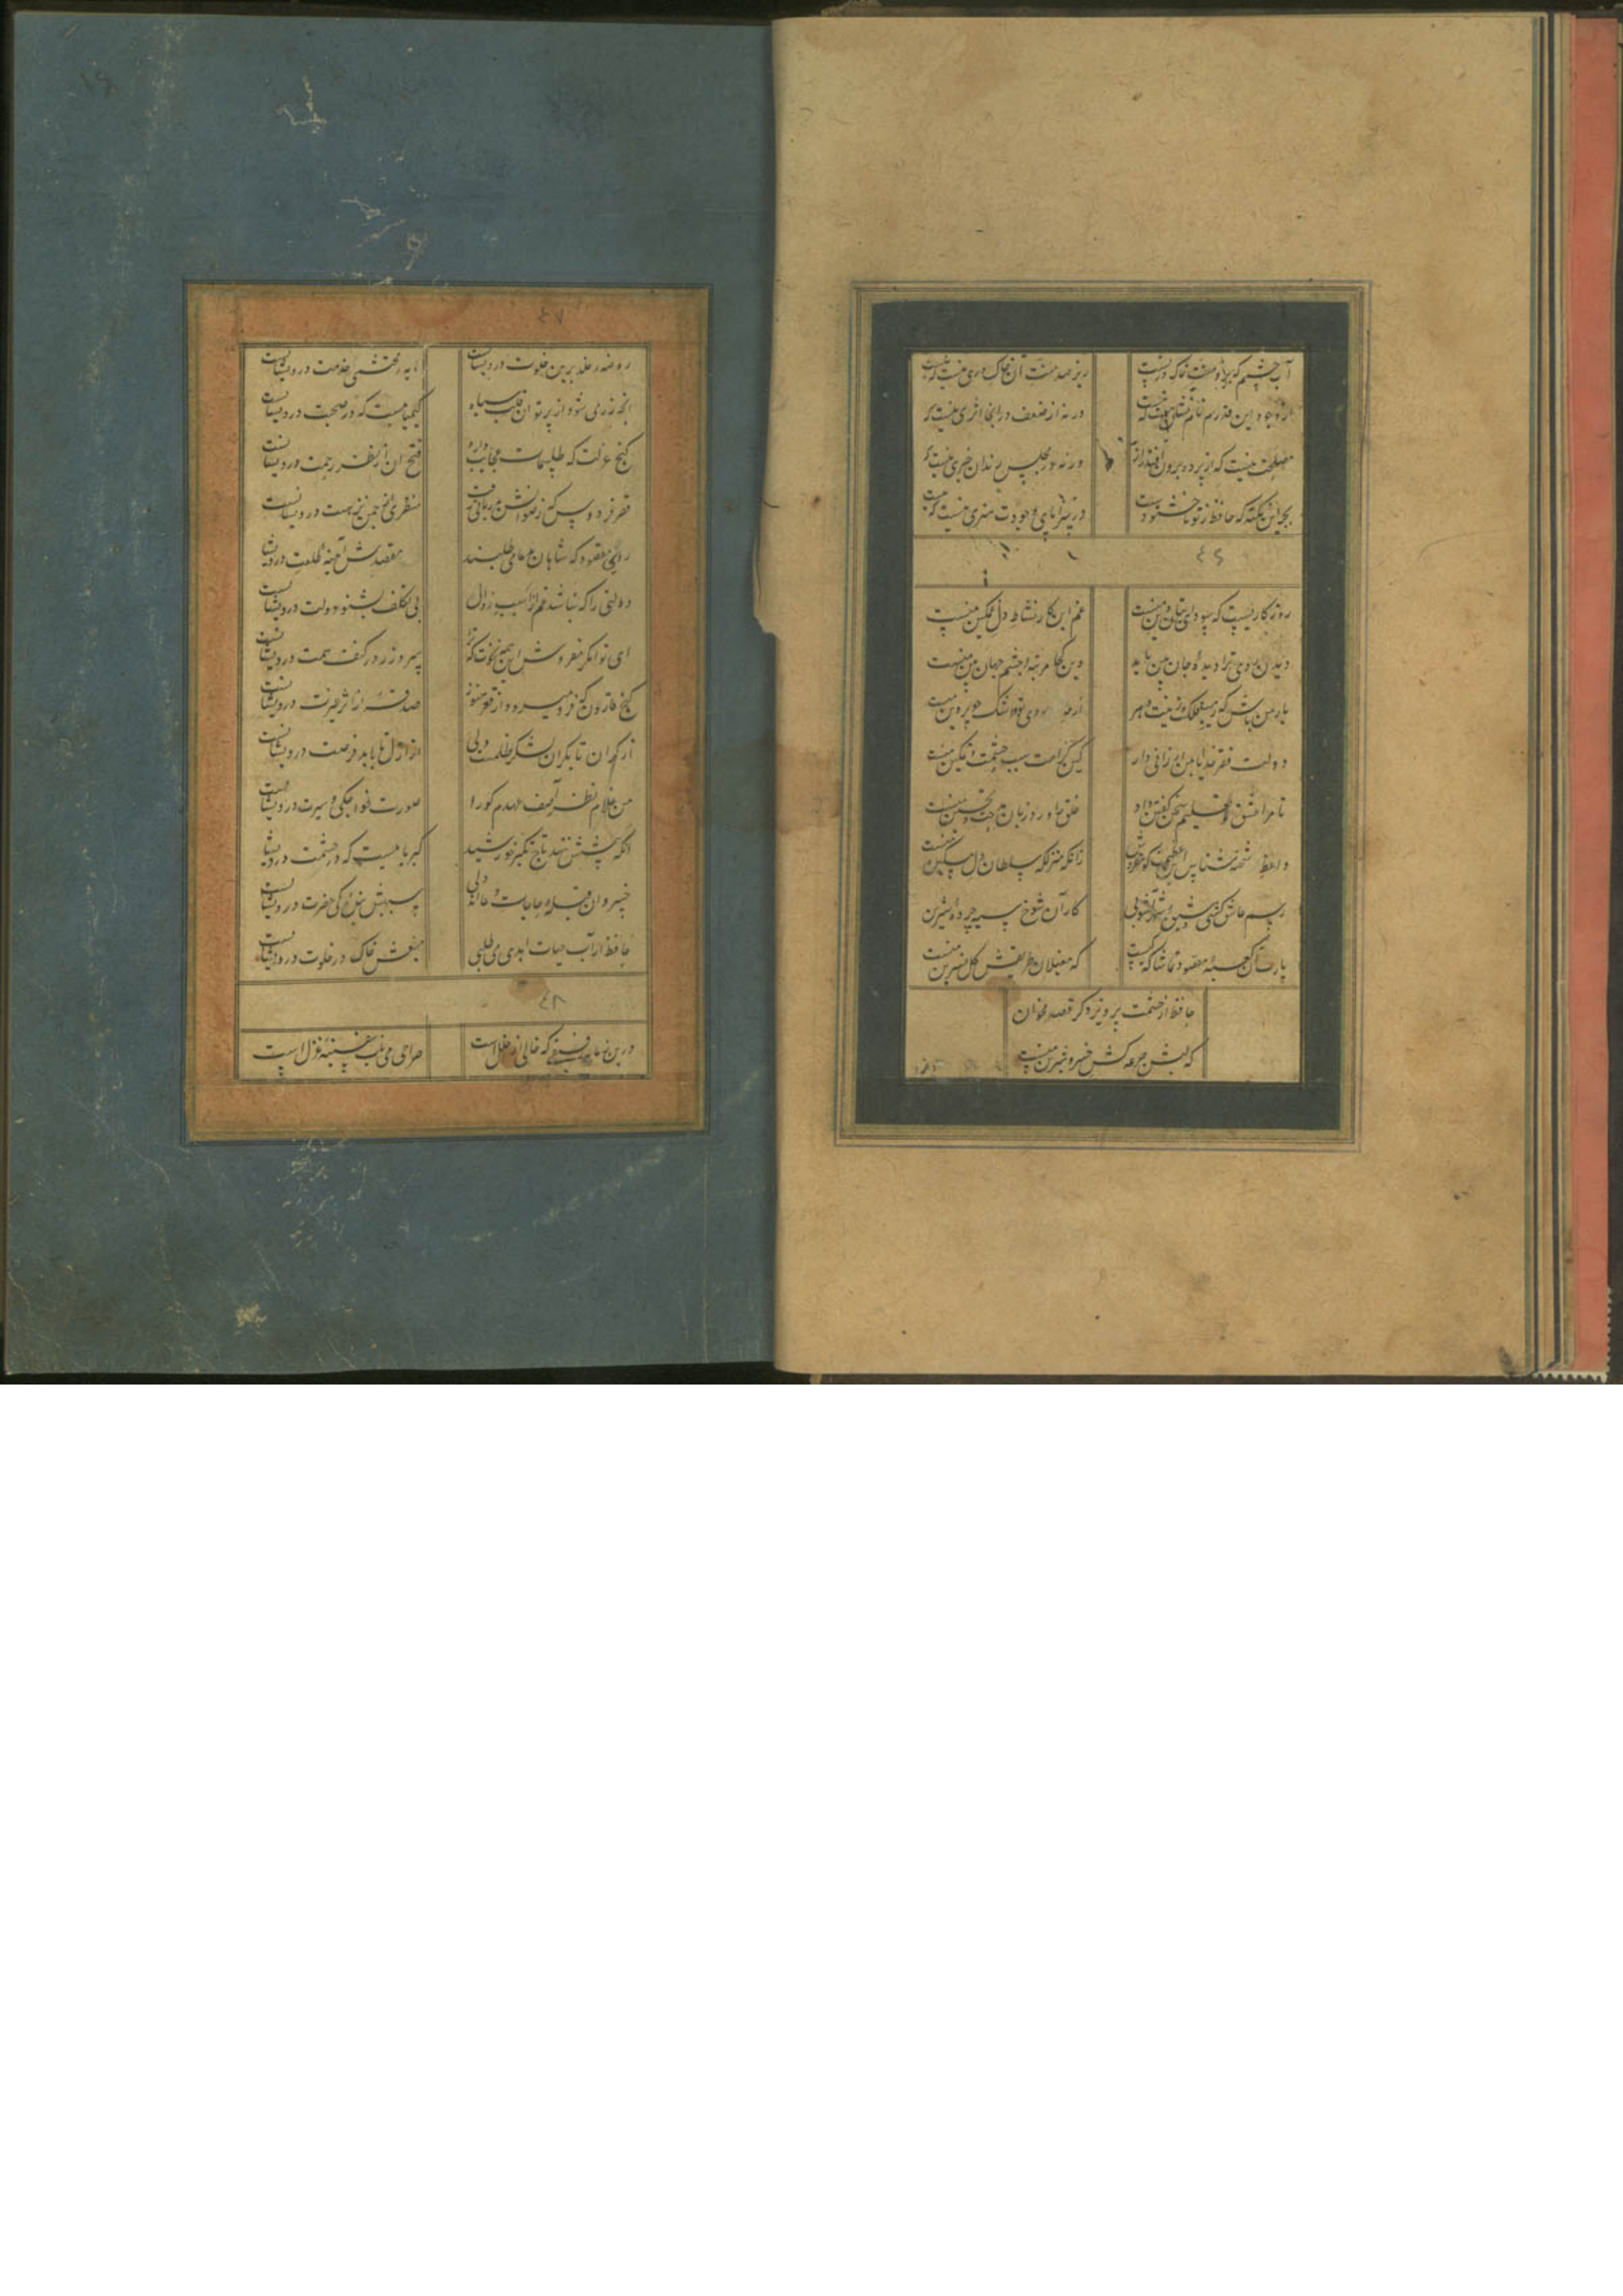 آب چشمم که برو منت خاک در تست زیر صد منت آن خاک دری نیست که نیست
از وجود این قدرم نام و نشان هست که هست ورنه از ضعف در انجا اثری نیست که
مصلحت نیست که از پرده برون افتد راز ورنه در مجلس رندان خبری نیست که
بجز این نکته که حافظ ز تو ناخشنودست در سراپای وجودت هنری نیست که نیست
٤٦
روزگاریست که سودای بتان دین منست غم این کار نشاط دل غمگین منست
دیدن روی ترا دیده جان بین باید وین کجا مرتبه چشم جهان بین منست
یار من باش که زیب فلک و زینت دهر از مه روی تو و اشک چو پروین منست
دولت فقر خدایا بمن ارزانی دار کین کرامت سبب حشمت و تمکین منست
تا مرا عشق تو تعلیم سخن گفتن داد خلق را ورد زبان مدحت و تحسین منست
واعظ شحنه شناس این عظمت گو مفروش زانکه منزلگه سلطان دل مسکین منست
یارب آن کعبه مقصود تماشاگه کیست که مغیلان طریقش گل نسرین منست
حافظ از حشمت پرویز دگر قصه مخوان
که لبش جرعه کش خسرو شیرین منست
٤٧
روضه خلد برین خلوت درویشانست مایه محتشمی خدمت درویشانست
انچه زر می شود از پرتو ان قلب سیاه کیمیاییست که در صحبت درویشانست
گنج عزلت که طلسمات عجایب دارد فتح ان از نظر رحمت درویشانست
قصر فردوس که رضوانش بدربانی رفت منظری از چمن نزهت درویشانست
روی مقصود که شاهان بدعا می طلبند مقصدش آینه طلعت درویشا
دولتی را که نباشد غم از آسیب زوال بی تکلف بشنو دولت درویشانست
ای توانگر مفروش این همه نخوت که ترا سر و زر در کنف همت درویشانست
گنج قارون که فرو میرود از قعر هنوز صدقه از اثر غیرت درویشانست
از کران تا بکران لشکر ظلمست ولی از ازل تا بابد فرصت درویشانست
من غلام نظر آصف عهدم کو را صورت خواجگی و سیرت درویشانست
آنکه پیشش بنهد تاج تکبر خورشید کبریاییست که در حشمت درویشا
خسروان قبله حاجات دعااند ولی سببش بندگی حضرت درویشانست
حافظ ار آب حیات ابدی می طلبی منبعش خاک در خلوت درویشانست
٤٨
درین زمانه رفیقی که خالی از خللست صراحی می ناب و سفینه غزل است